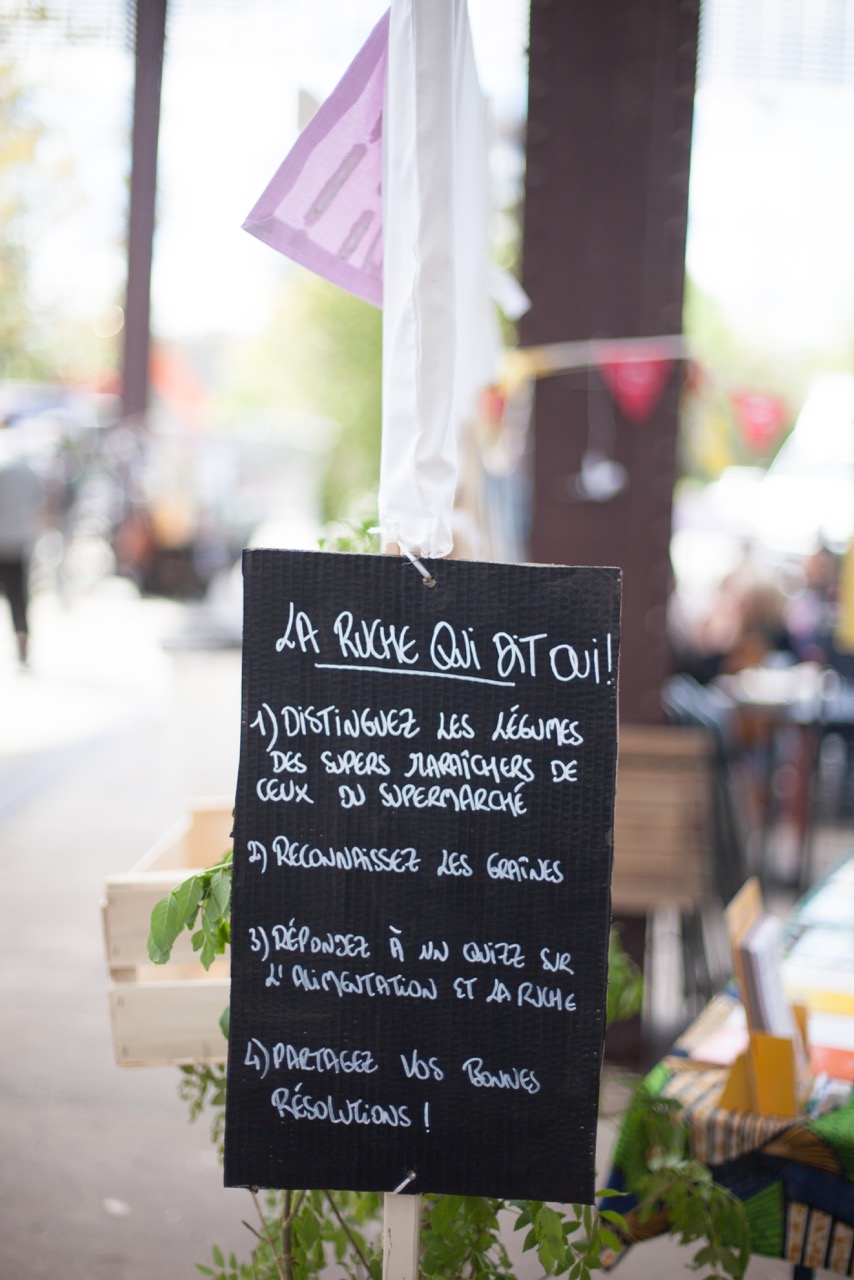 LA RUCHE QUI DIT OUI!
1) DISTINGUEZ LES LÉGUMES
DES SUPERS MARAÎCHERS DE
CEUX DU SUPERMARCHÉ
2) RECONNAISSEZ LES GRAÎNES
3) RÉPONDEZ À UN QUIZZ SUR
L'ALIMENTATION ET LA RUCHE
4) PARTAGEZ VOS BONNES
RÉSOLUTIONS !